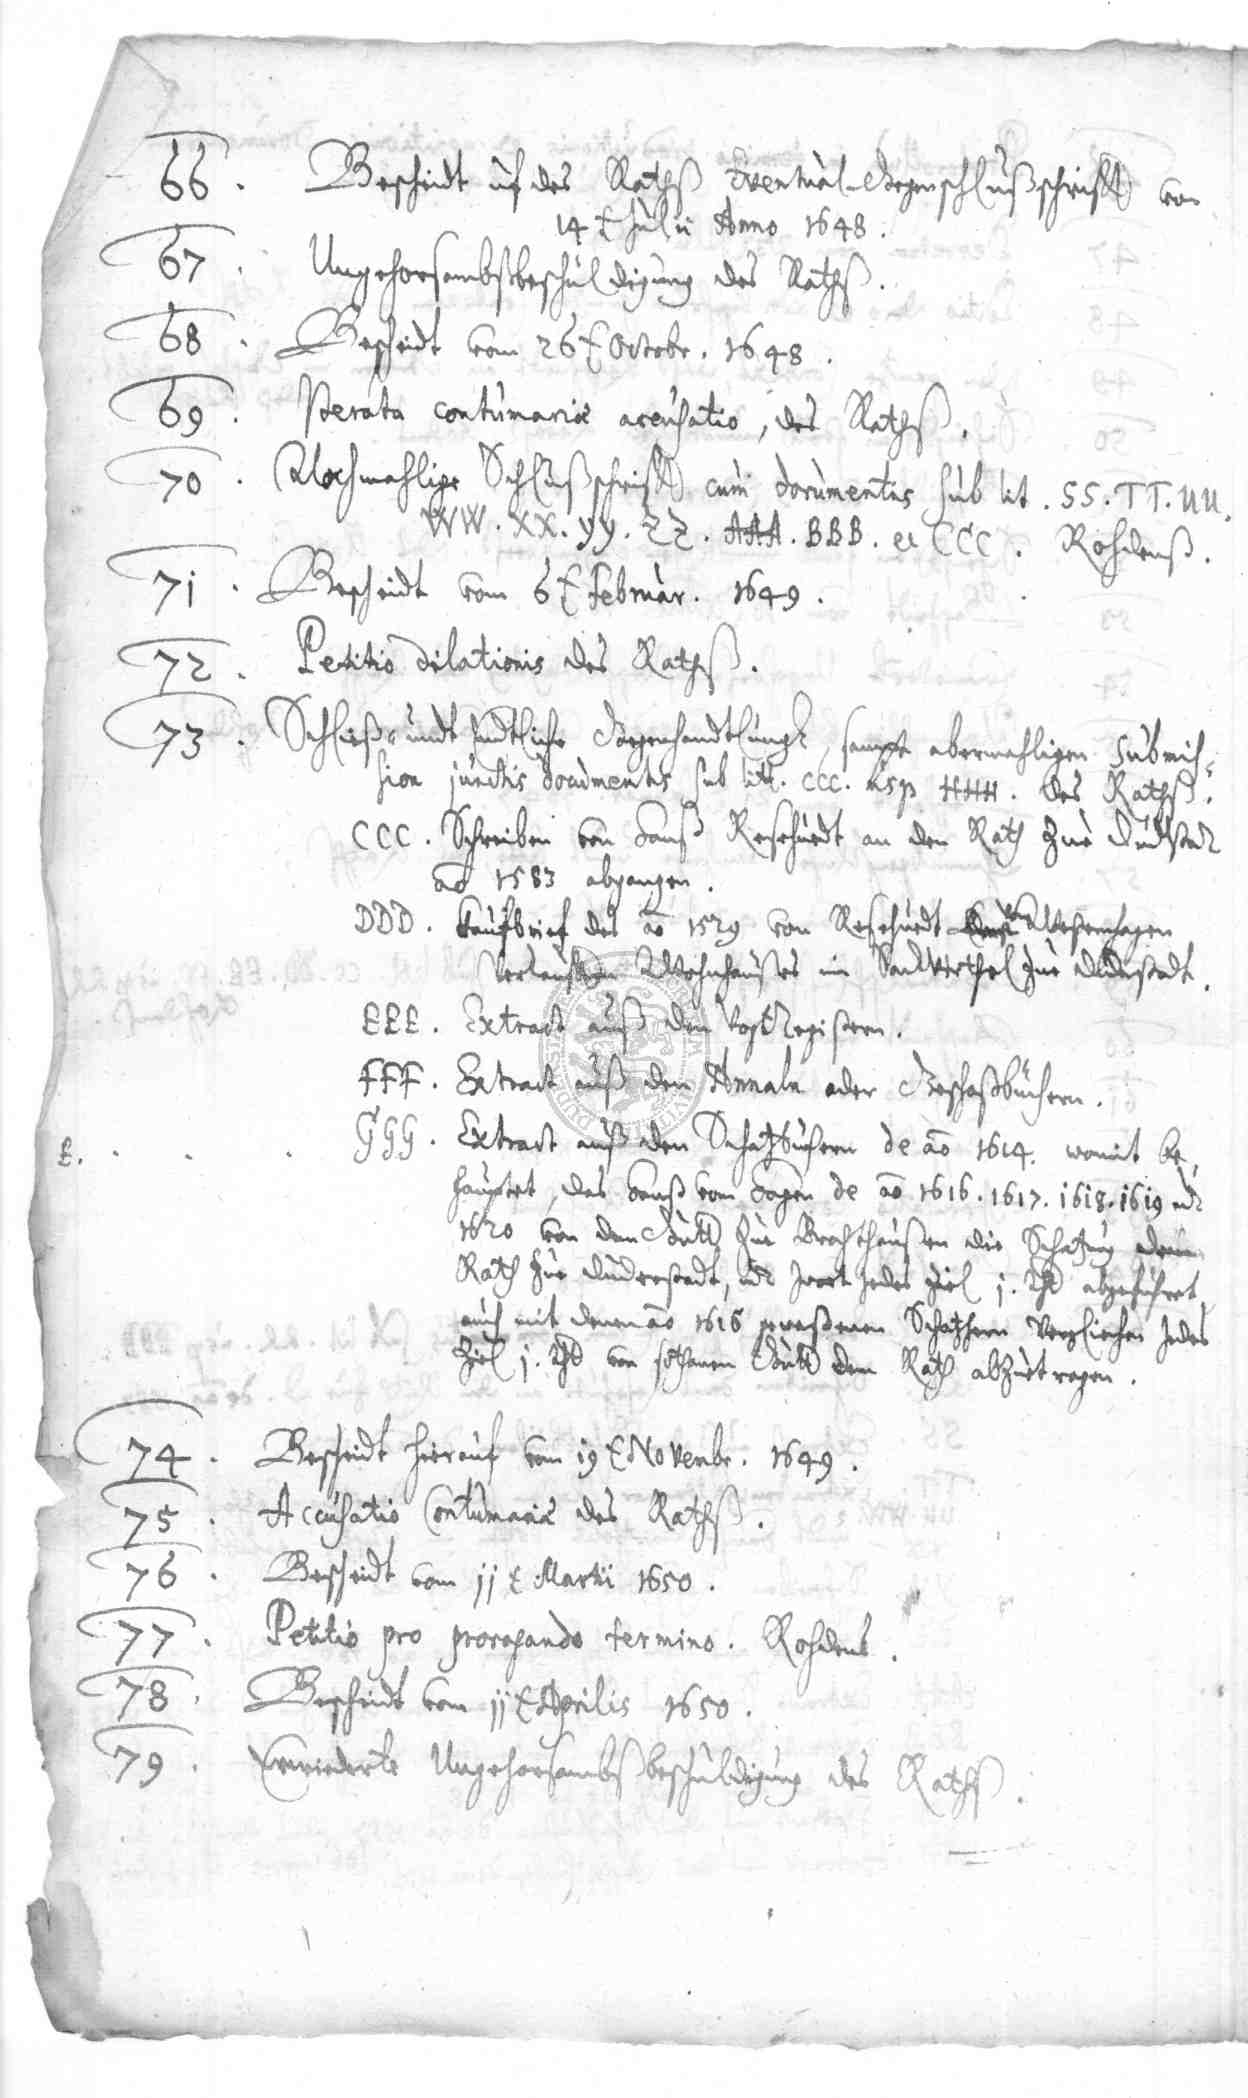 66. Bescheidt uf des Rathß Eventual-Gegenschlußschrifft von
14t Julii Anno 1648.
67. Ungehorsambßbeschuldigung des Rathß.
68. Bescheidt vom 26t Octobr. 1648.
69. Iterata contumaciæ accusatio, des Rathß.
70. Nochmahlige Schlußschrifft cum documentis sub lit. SS. TT. UU.
WW. XX. yy. ZZ. AAA. BBB. et CCC. Rohdenß.
71. Bescheidt vom 6t Februar. 1649.
72. Petitio dilationis des Rathß.
73. Schließ- undt endtliche Gegenhandtlung, sampt abermahligen Submis-
sion junctis documentis sub litt. CCC. usq HHH. des Rathß.
CCC. Schreiben von Hanß Reschuedt an den Rath zue Dudstadt
ao 1583 abgangen.
DDD. Kaufbrief des ao 1529 von Reschuedt von Westernhagen
verkaufften Wohnhaußes im Sandverthel zue Duderstadt.
EEE. Extract auß den Registern.
FFF. Extract auß den Annaln oder Geschoßbüchern.
GGG. Extract auß den Schatzbüchern de ao 1614. womit be-
E. hauptet, das Hanß vom Hagen de ao 1616. 1617. 1618. 1619 undt
1620 von dem Guth zue Brochthaußen die Schatzung dem
Rath zue Duderstadt, undt zwart jedes Ziel j. abgeführet
auch mit denen ao 1616 geweßenen Schatzhern verglichen jedes
Ziel j. von sothanen Guth dem Rath abzuetragen.
74. Bescheidt hierauf vom 19t Novembr. 1649.
75. Accusatio Contumaciæ des Rathß.
76. Bescheidt vom jj t Martii 1650.
77. Petitio pro prorogando termino. Rohdens.
78. Bescheidt vom jj t Aprilis 1650.
79. Erwiederte Ungehorsambßbeschuldigung des Rathß.